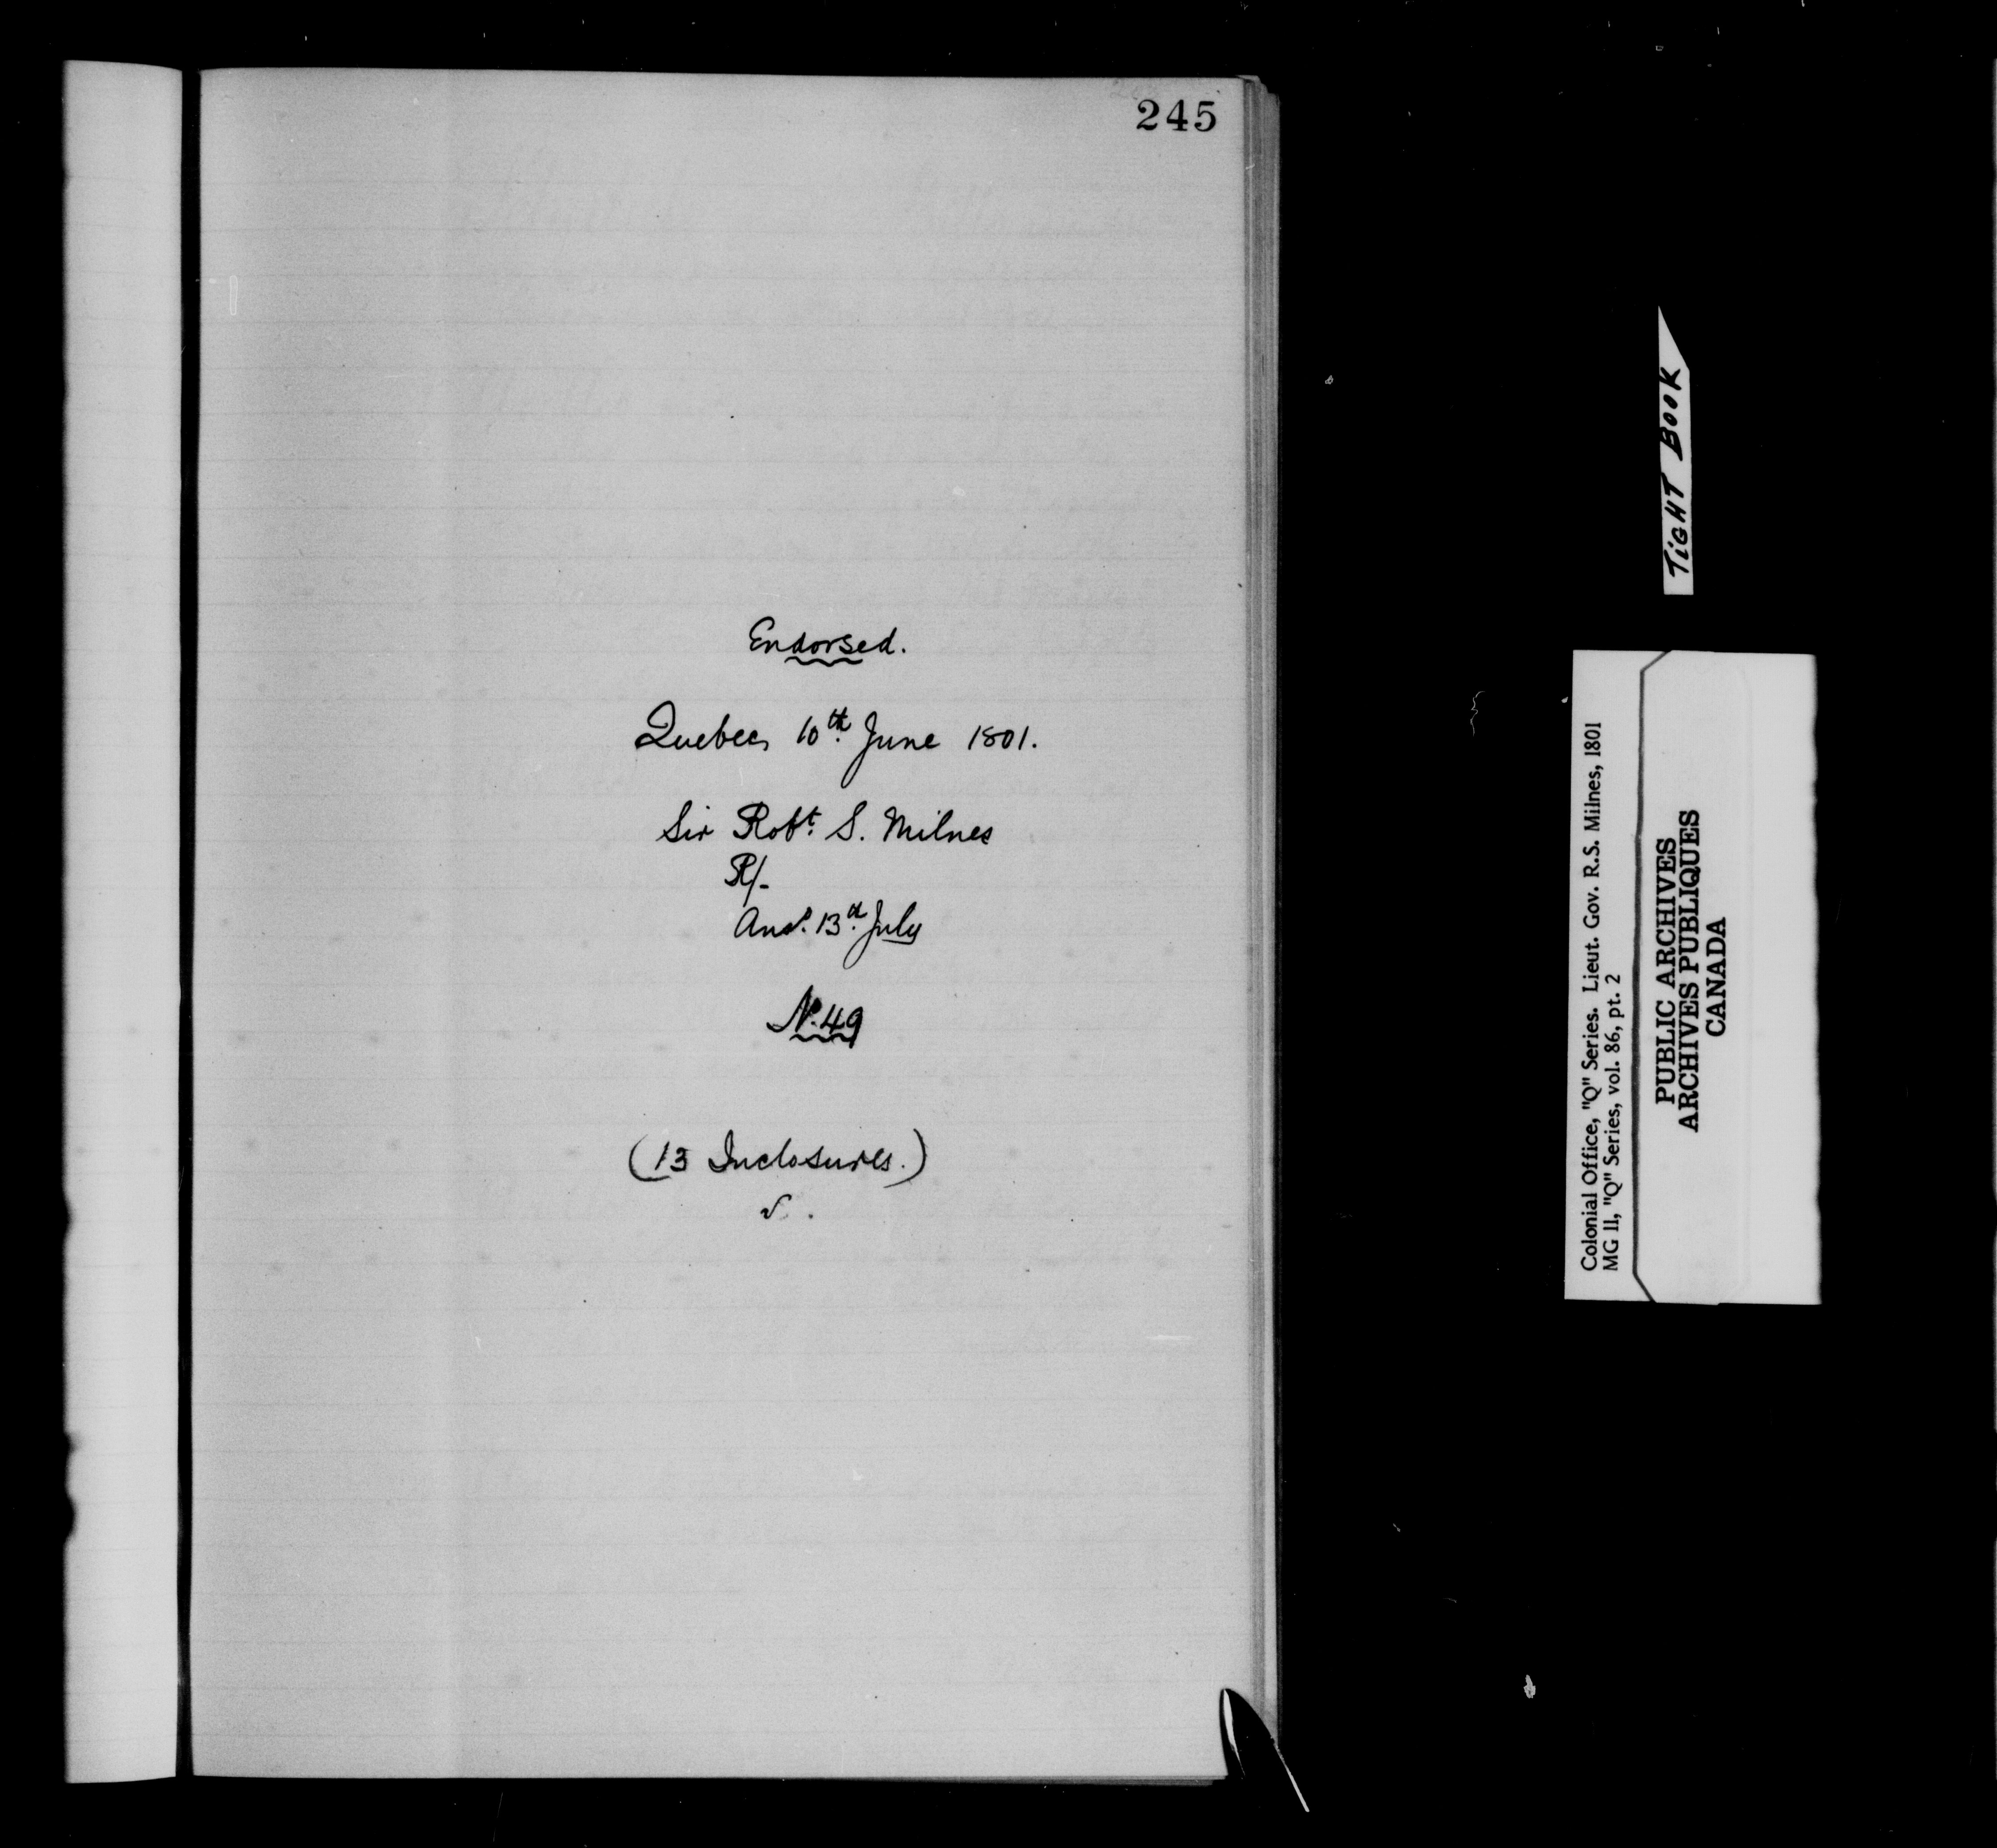 245
Endorsed.
Quebec, 10th June 1801.
Sir Robt. S. Milnes
R/-
Ansd. 13th July
No. 49
(13 Inclosures.)
TiGHT BOOK
Colonial Office, "Q" Series. Lieut. Gov. R.S. Milnes, 1801
MG 11, "Q" Series, vol. 86, pt. 2
PUBLIC ARCHIVES
ARCHIVES PUBLIQUES
CANADA